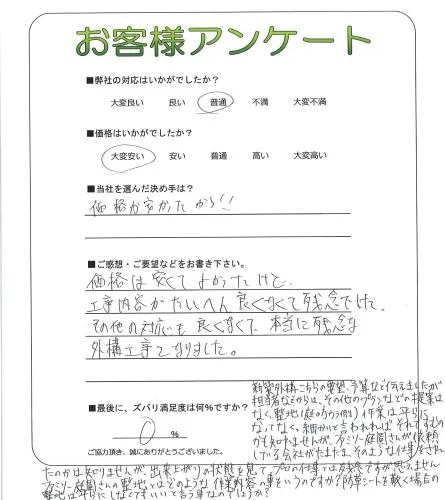 お客様アンケート
■弊社の対応はいかがでしたか?
大変良い 良い 普通 不満 大変不満
■価格はいかがでしたか?
大変安い 安い 普通 高い 大変高い
■当社を選んだ決め手は?
価格が安かったから!!
■ご感想・ご要望などをお書き下さい。
価格は安くてよかったけど、
工事内容がたいへん良くなくて残念でした。
その他の対応も良くなくて、本当に残念な
外構工事となりました。
■最後に、ズバリ満足度は何%ですか?
0 %
ご協力頂き、誠にありがとうございました。
新築外構こちらの要望、予算など伝えましたが
担当者などからは、その他のプランなどの提案は
なく、整地(庭の 側)作業は平らに
なってなく、細かいと言われればそれですむの
かも知れませんが、ファミリー庭園さんが依頼
している会社がたまたま、そのような仕事をされ
たのかは知りませんが、出来上がりの状態を見て、プロの仕事では残念ですが思えません
ファミリー庭園さんの整地ではどのような作業内容の事をいうのですか?防草シートを敷く場合の
整地は平らにしなくてもいいと言う事なのでしょうか?